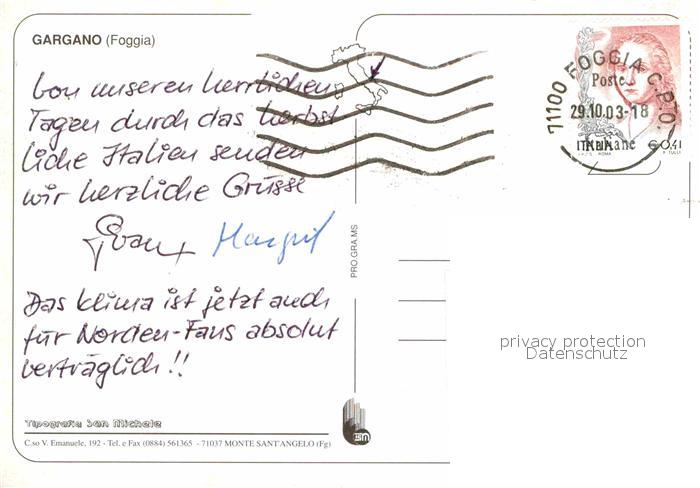 GARGANO (Foggia)
Von unseren herrlichen
Tagen durch das herbst
liche Italien senden
wir herzliche Grüsse
Margrit
Das Klima ist jetzt auch
für Norden-Fans absolut
verträglich!!
Tipografia San Michele
C.so V. Emanuele, 192 - Tel. e Fax (0884) 561365 - 71037 MONTE SANT'ANGELO (Fg)
PRO.GRA.MS
71100 FOGGIA C.P.O.
Poste
29.10.03-18
Italiane
€0,41
privacy protection
Datenschutz